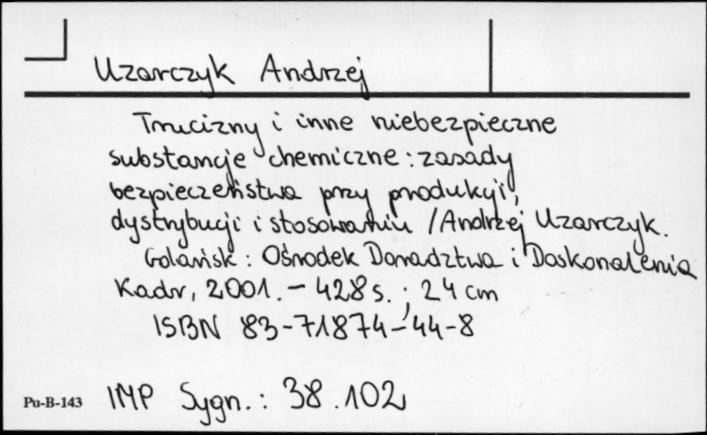 Uzarczyk Andrzej
Trucizny i inne niebezpieczne
substancje chemiczne : zasady
bezpieczeństwa przy produkcji,
dystrybucji i stosowaniu / Andrzej Uzarczyk.
Gdańsk : Ośrodek Doradztwa i Doskonalenia
Kadr, 2001. - 428 s. ; 24 cm
ISBN 83-71874-44-8
Pu-B-143 IMP Sygn. : 38.102